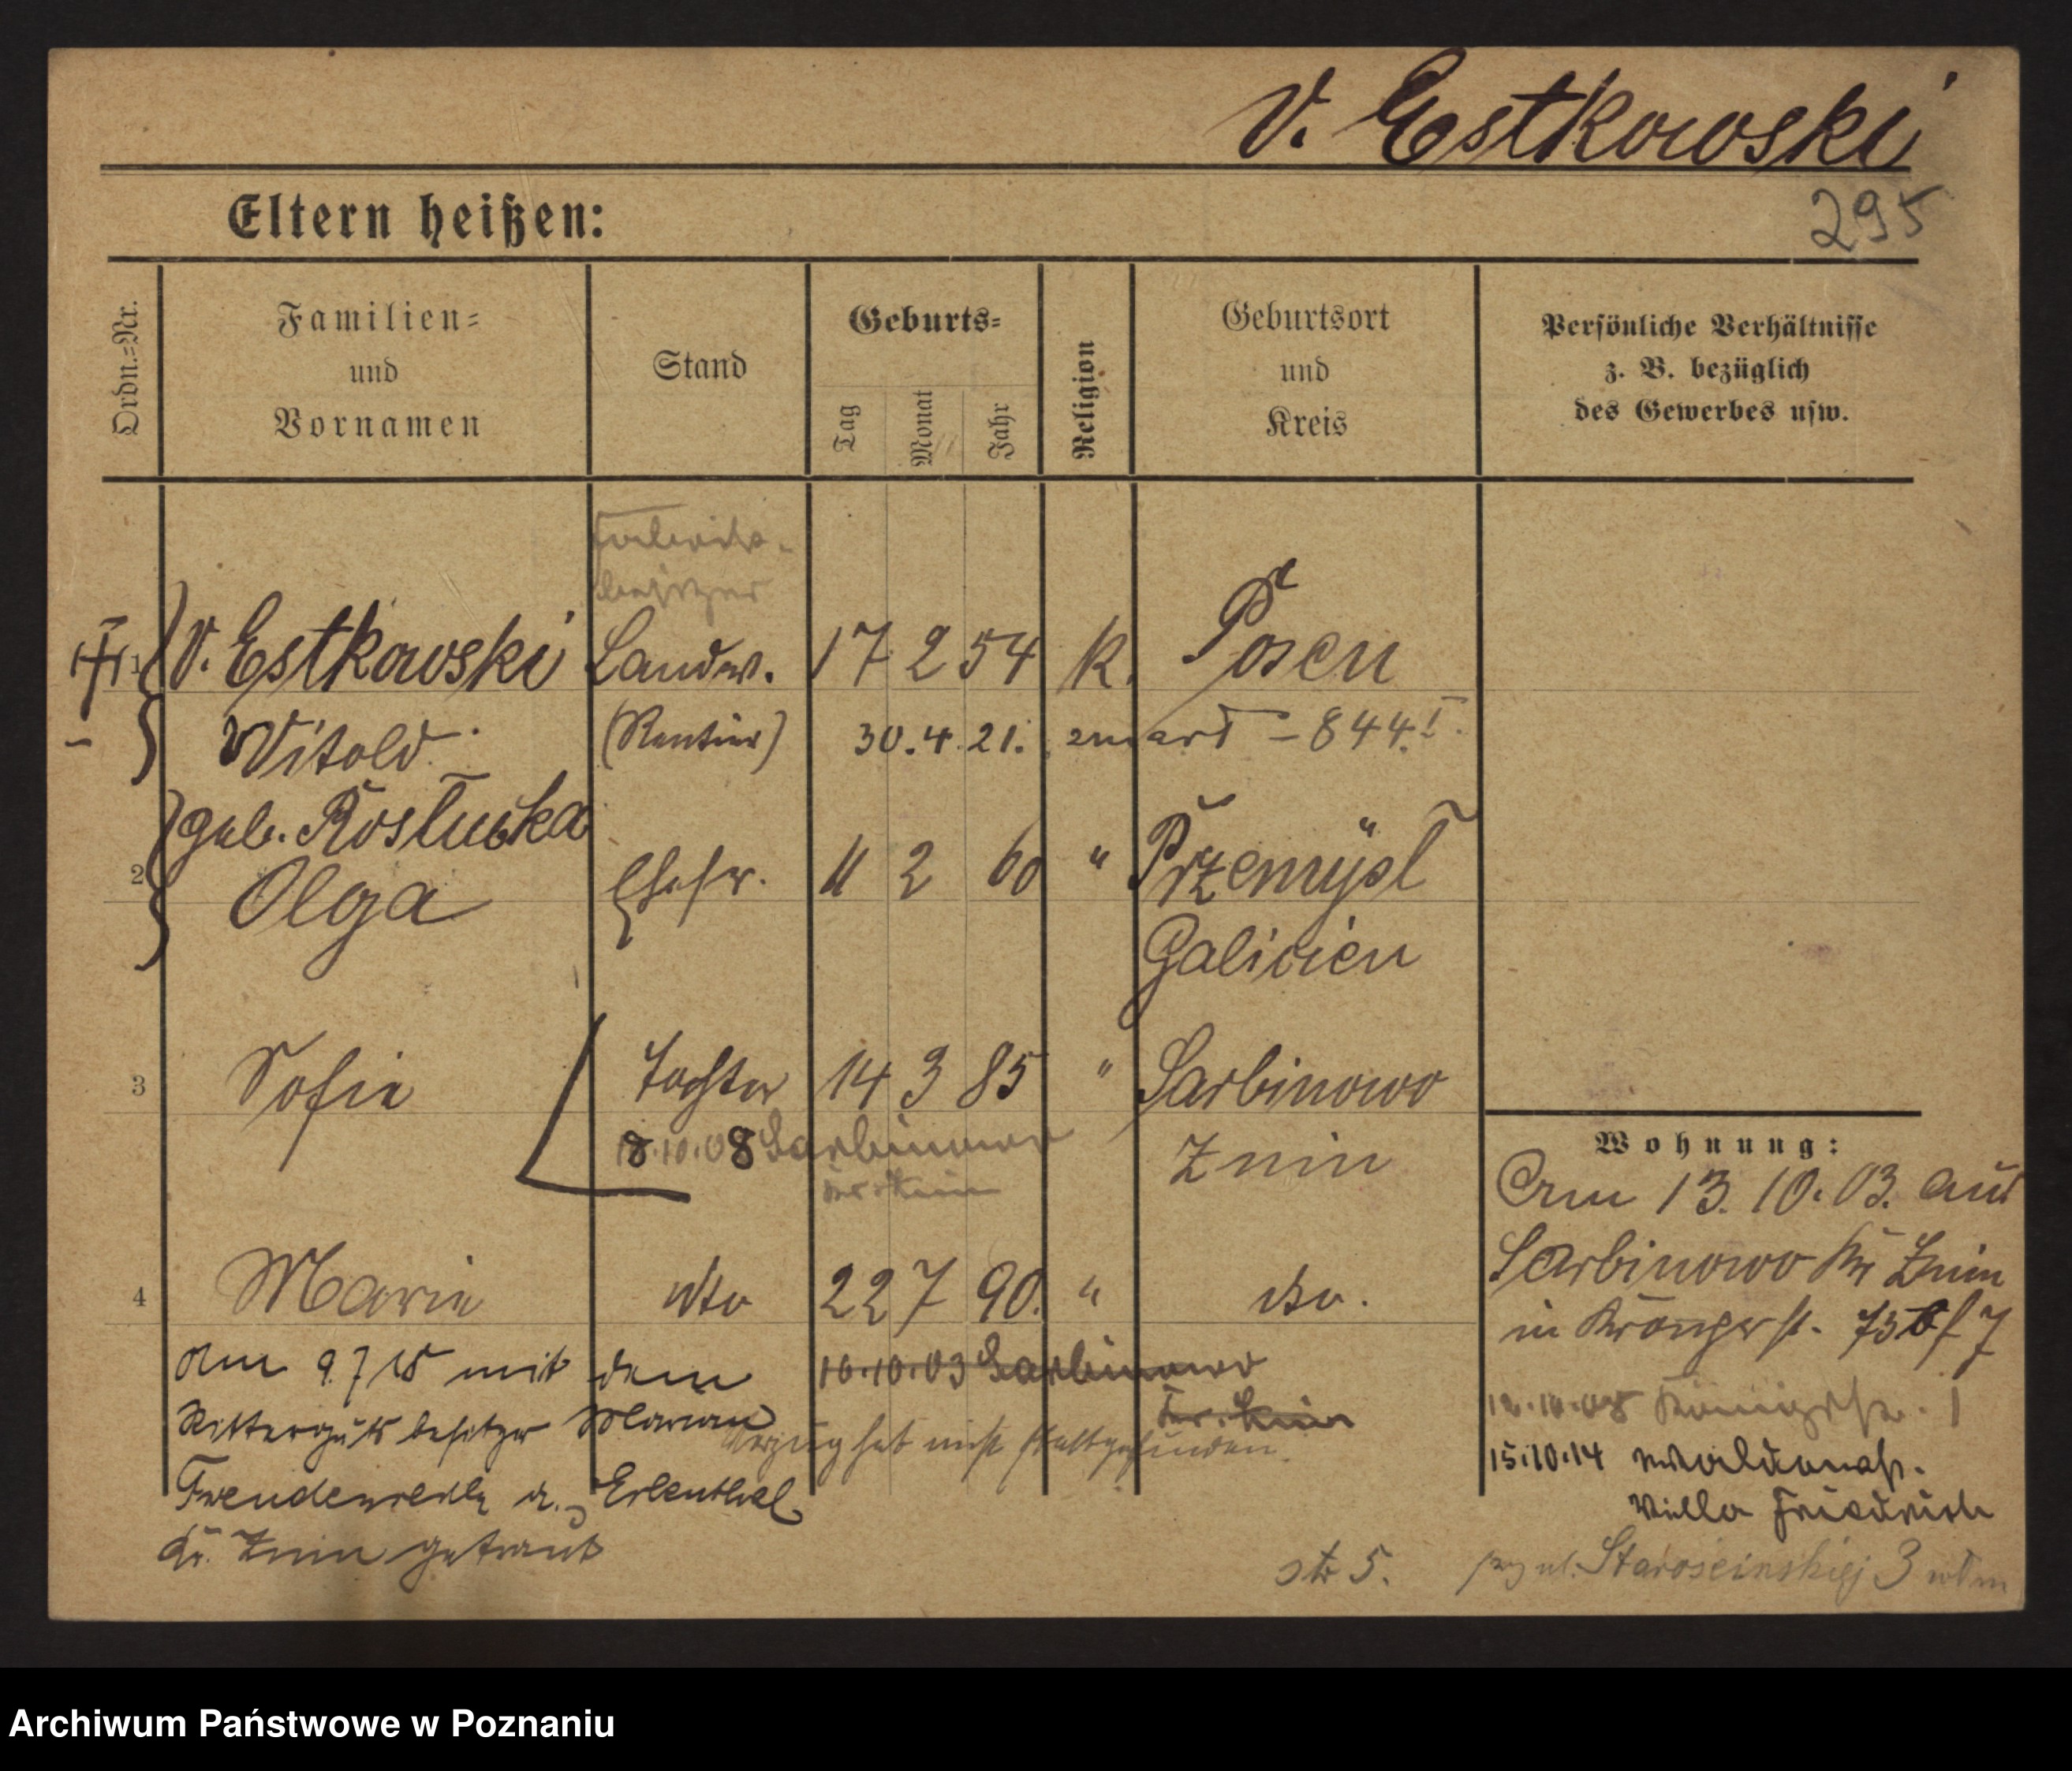 v. Estkowski
Eltern heißen:
295
Ordn.=Nr.
Familien=
und
Vornamen
Stand
Geburts=
Tag
Monat
Jahr
Religion
Geburtsort
und
Kreis
Persönliche Verhältnisse
z. B. bezüglich
des Gewerbes usw.
besitzer
1 v. Estkowski Landw. 17 2 54 k. Posen
Witold (Rentier) 30. 4. 21. zmarł – 844.I.
geb. Rostucka
2 Olga Ehefr. 11 2 60 " Przemysl
Galicien
3 Sofie Tochter 14 3 85 " Sarbinowo
8.10.08 Sarbinowo Znin
Kr. Znin
4 Marie dto 22 7 90. " dto.
Am 9.7 18 mit dem 10.10.03 Sarbinowo
Kr. Znin
Rittergutsbesitzer Marian
Verzug hat nicht stattgefunden.
a. Erlenthal
Kr. Znin getraut
Wohnung:
Am 13. 10. 03. aus
Sarbinowo Kr Znin
in
Königstr. 1
15.10.14
Villa Friedrich
str 5.
ul. 3
Archiwum Państwowe w Poznaniu